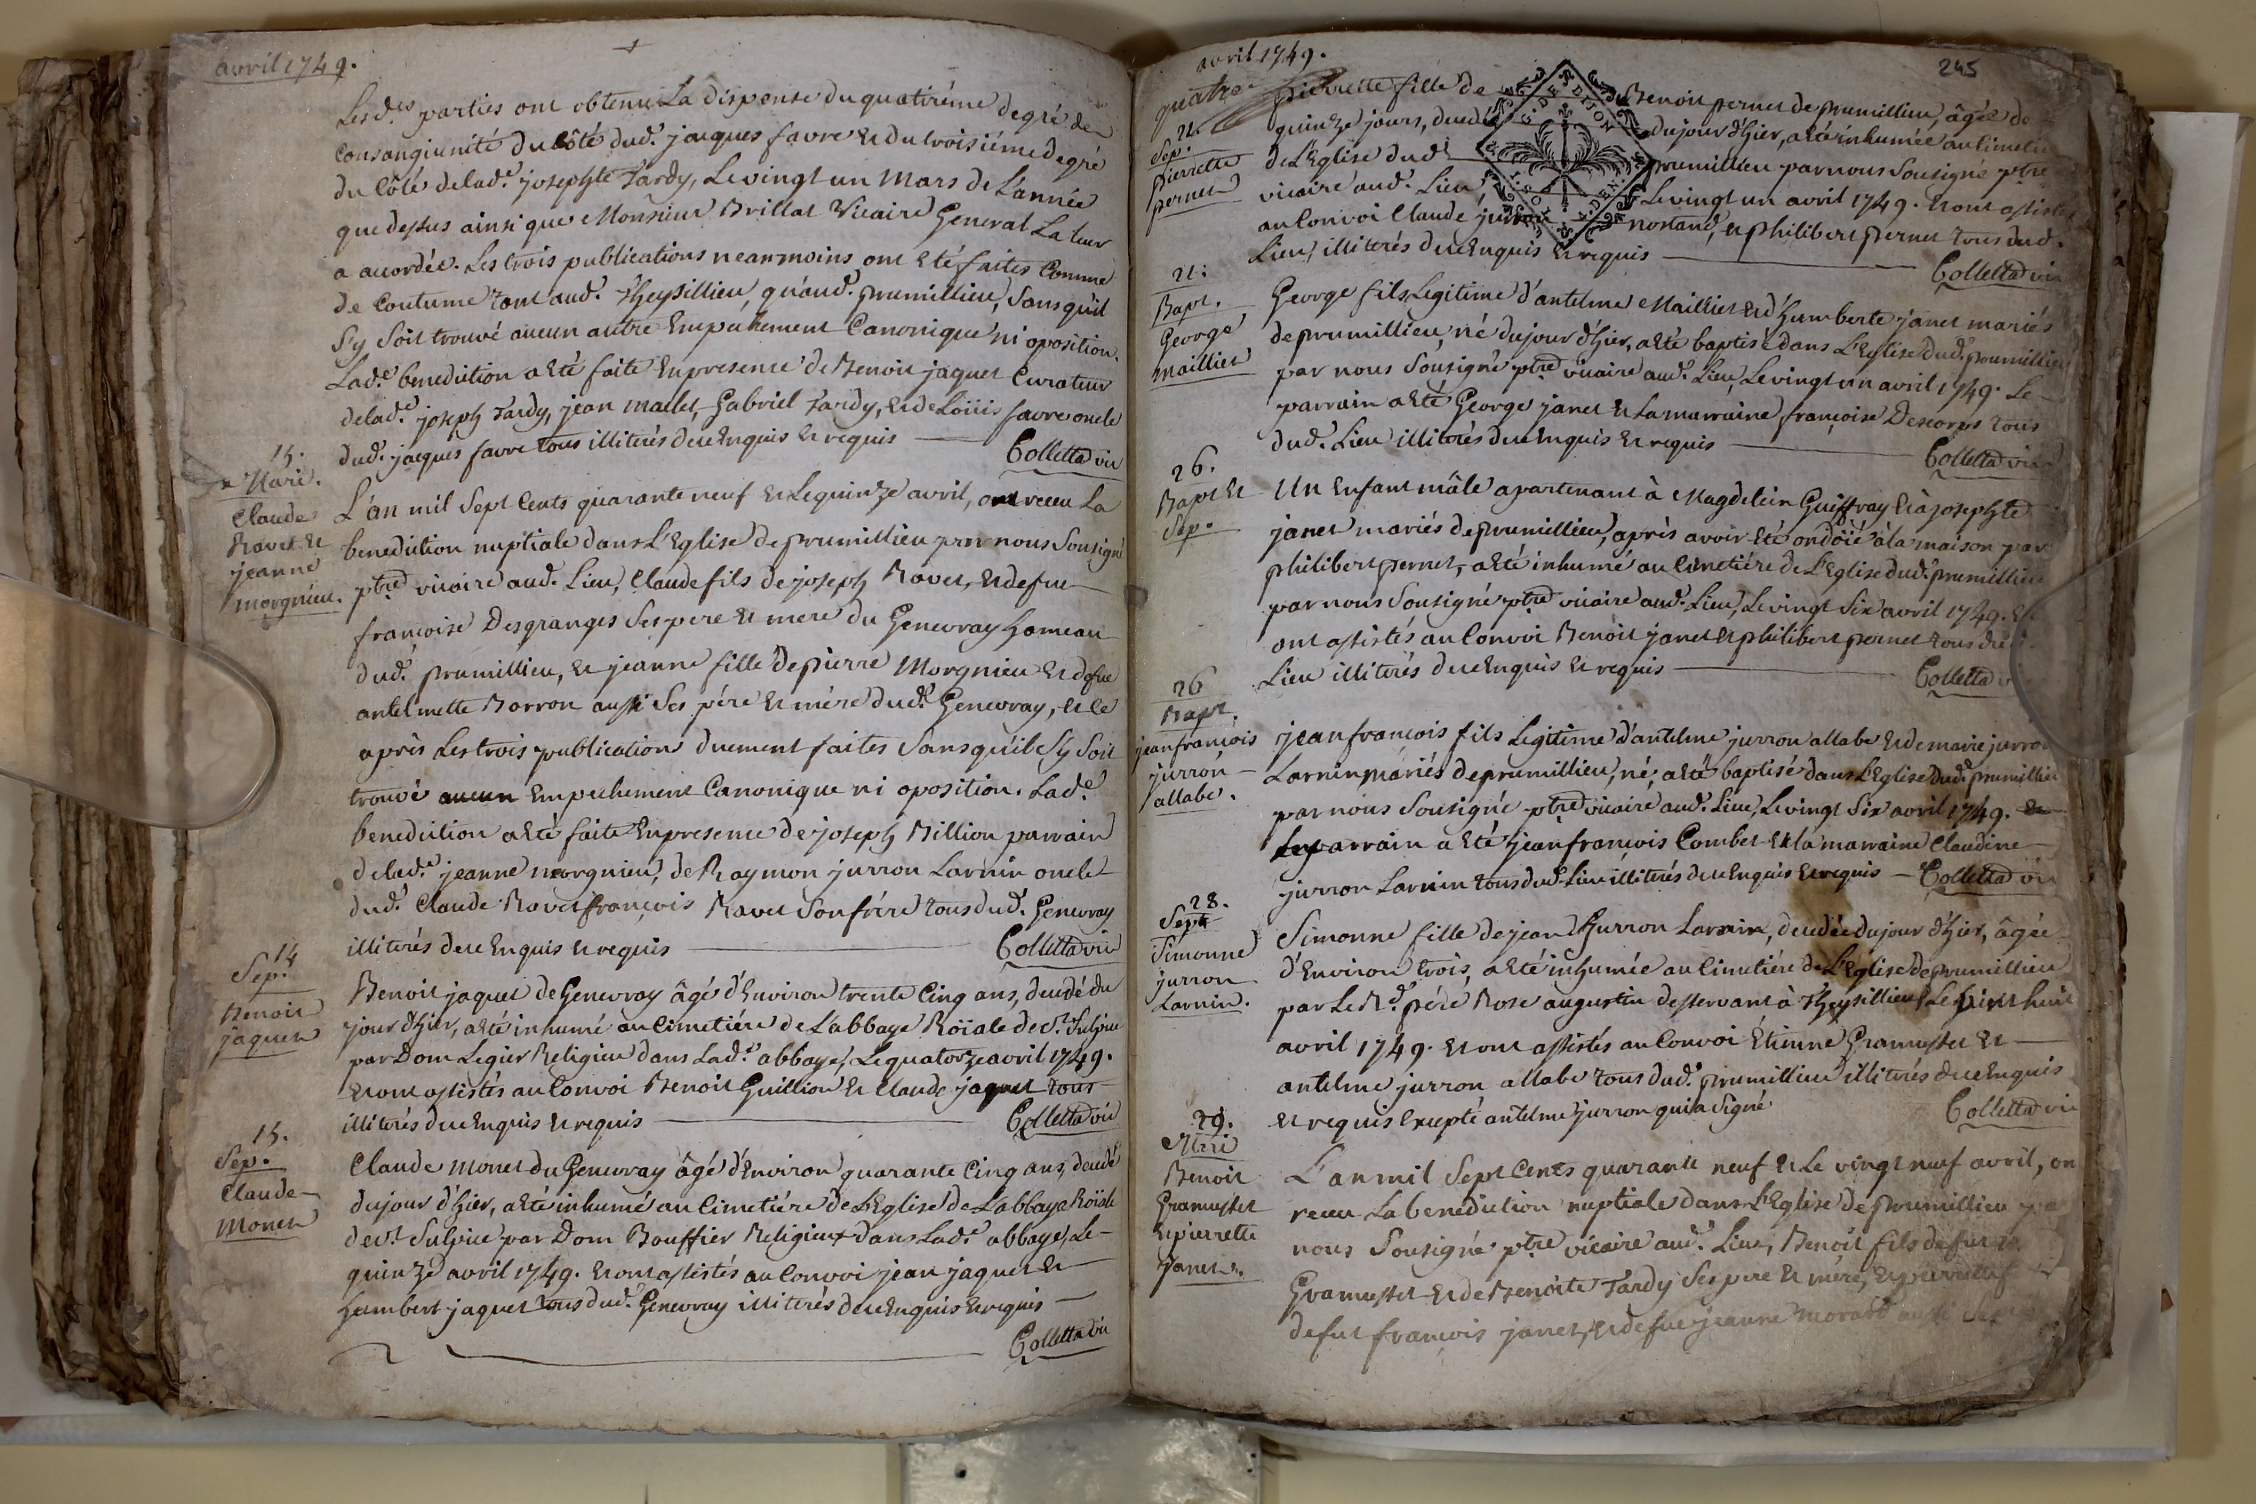 avril 1749.
Les d.es parties ont obtenu La dispense du quatriéme degré de
consangiunité du côté dud. jacques favre et du troisiéme degré
du côté de lad.e josephte Tardy, Le vingt un Mars de L'année
que dessus ainsi que Monsieur Brillat Vicaire General La leur
a accordée. Les trois publications neanmoins ont eté faites Comme
de Coutume tant aud. Theysillieu, qu'aud. prumillieu, Sans qu'il
S'y Soit trouvé aucun autre Empechement Canonique ni oposition.
Lad.e benediction a eté faite En presence de Benoit jaquet Curateur
de lad.e joseph Tardy, jean mallet, Gabriel Tardy, et de Loüis favre oncle
dud. jacques favre tous illiterés de ce Enquis et requis
Colletta vic
15.
Mari.
Claude
Ravet et
jeanne
morgnieu.
L'an mil Sept Cents quarante neuf et Le quinze avril, ont receu La
benediction nuptiale dans L'Eglise de prumillieu par nous Sousigné
ptre vicaire aud. Lieu, Claude fils de joseph Ravet, et de fue
françoise Desgranges Ses pere et mere du Genevray hameau
dud. prumillieu, et jeanne fille de pierre Morgnieu et de fue
antelmette Borron aussi Ses pére et mére dud. Genevray, et ce
après Les trois publication duement faites Sans qu'il S'y Soit
trouvé aucun Empechement Canonique ni oposition. Lad.e
benediction a eté faite En presence de joseph Billion parrain
de lad.e jeanne morgnieu, de Raymon jurron Larnin oncle
dud. Claude Ravet françois Ravet Son frére tous dud. Genevray
illiterés de ce Enquis et requis
Colletta vic
14
Sep.
Benoit
jaquet
Benoit jaquet de Genevray âgé d'Environ trente Cinq ans, decedé du
jour d'hier, a eté inhumé au Cimetiére de L'abbaye Roïale de S.t Sulpice
par Dom Legier Religieu dans Lad.e abbaye, Le quatorze avril 1749.
et ont assistés au Convoi Benoit Guillion et Claude jaquet tous
illiterés de ce Enquis et requis
Colletta vic
15.
Sep.
Claude
Monet
Claude Monet du Genevray âgé d'Environ quarante Cinq ans, decedé
du jour d'hier, a eté inhumé au Cimetiére de L'Eglise de L'abbaye Roïale
de S.t Sulpice par Dom Bouffier Religieux dans Lad.e abbaye, Le
quinze avril 1749. et ont assistés au Convoi jean jaquet et
humbert jaquet tous dud. Genevray illiterés de ce Enquis et requis
Colletta vic
avril 1749.
245
quatre
21.
Sep.
pierrette
pernet
pierrette fille de Benoit pernet de prumillieu, âgée de
quinze jours, decedée du jour d'hier, a eté inhumée au Cimetiére
de L'Eglise dud. prumillieu par nous Sousigné ptre
vicaire aud. Lieu, Le vingt un avril 1749. et ont assistés
au Convoi Claude jurron norand, et philibert pernet tous dud.
Lieu, illiterés de ce Enquis et requis
Colletta vic
G. DE DIJON
21.
Bapt.
George
maillier
George fils Legitime d'antelme Maillier et d'humberte janet mariés
de prumillieu, né du jour d'hier, a eté baptisé dans L'Eglise dud. prumillieu
par nous Sousigné ptre vicaire aud. Lieu, Le vingt un avril 1749. Le
parrain a eté George janet et La marraine françoise Descorps tous
dud. Lieu illiterés de ce Enquis et requis
Colletta vic
26.
Bapt et
Sep.
Un Enfant mâle apartenant à Magdelein Guiffray et à josephte
janet mariés de prumillieu, après avoir eté ondoïé à la maison par
philibert pernet, a eté inhumé au Cimetiére de L'Eglise dud. prumillieu
par nous Sousigné ptre vicaire aud. Lieu, Le vingt Six avril 1749. et
ont assistés au Convoi Benoit janet et philibert pernet tous dud.
Lieu illiterés de ce Enquis et requis
Colletta
26
Bapt.
jean françois
jurron
allabe.
jean françois fils Legitime d'antelme jurron allabe et de marie jurron
Larnin mariés de prumillieu, né, a eté baptisé dans L'Eglise dud. prumillieu
par nous Sousigné ptre vicaire aud. Lieu, Le vingt Six avril 1749. et
Le parrain a eté jean françois Combet et la marraine Claudine
jurron Larnin tous dud. Lieu illiterés de ce Enquis et requis
Colletta vic
28.
Sept
Simonne
jurron
Larnin.
Simonne fille de jean Jurron Larnin, decedée du jour d'hier, âgée
d'Environ trois, a eté inhumée au Cimetiére de L'Eglise de prumillieu
par Le R.d pére Rose augustin desservant à Theysillieu, Le vint huit
avril 1749. et ont assistés au Convoi Étienne Gramusset et
antelme jurron allabe tous dud. prumillieu illiterés de ce Enquis
et requis Excepté antelme jurron qui a signé
Colletta vic
29.
Mari
Benoit
Gramusset
et pierrette
Janet.
L'an mil Sept Cents quarante neuf et Le vingt neuf avril, on
receu La benediction nuptiale dans L'Eglise de prumillieu par
nous Sousigné ptre vicaire aud. Lieu, Benoit fils de fut
Gramusset et de Benoite Tardy Ses pere et mére, et pierrette
de fut françois janet, et de fue jeanne morast aussi